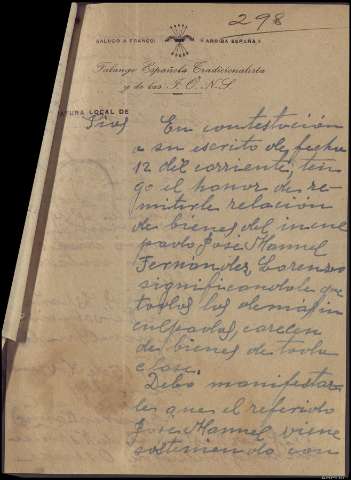 298
SALUDO A FRANCO ¡ARRIBA ESPAÑA!
Falange Española Tradicionalista
y de las J. O. N. S.
ATURA LOCAL DE
En contestación
a su escrito de fecha
12 del corriente, ten
go el honor de re-
mitirle relación
de bienes del incul
pado Jose Manuel
Fernández Lorenzo
significandole que
todos los demás in
culpados, carecen
de bienes de toda
clase.
Debo manifestar
le que el referido
Jose Manuel viene
sosteniendo con